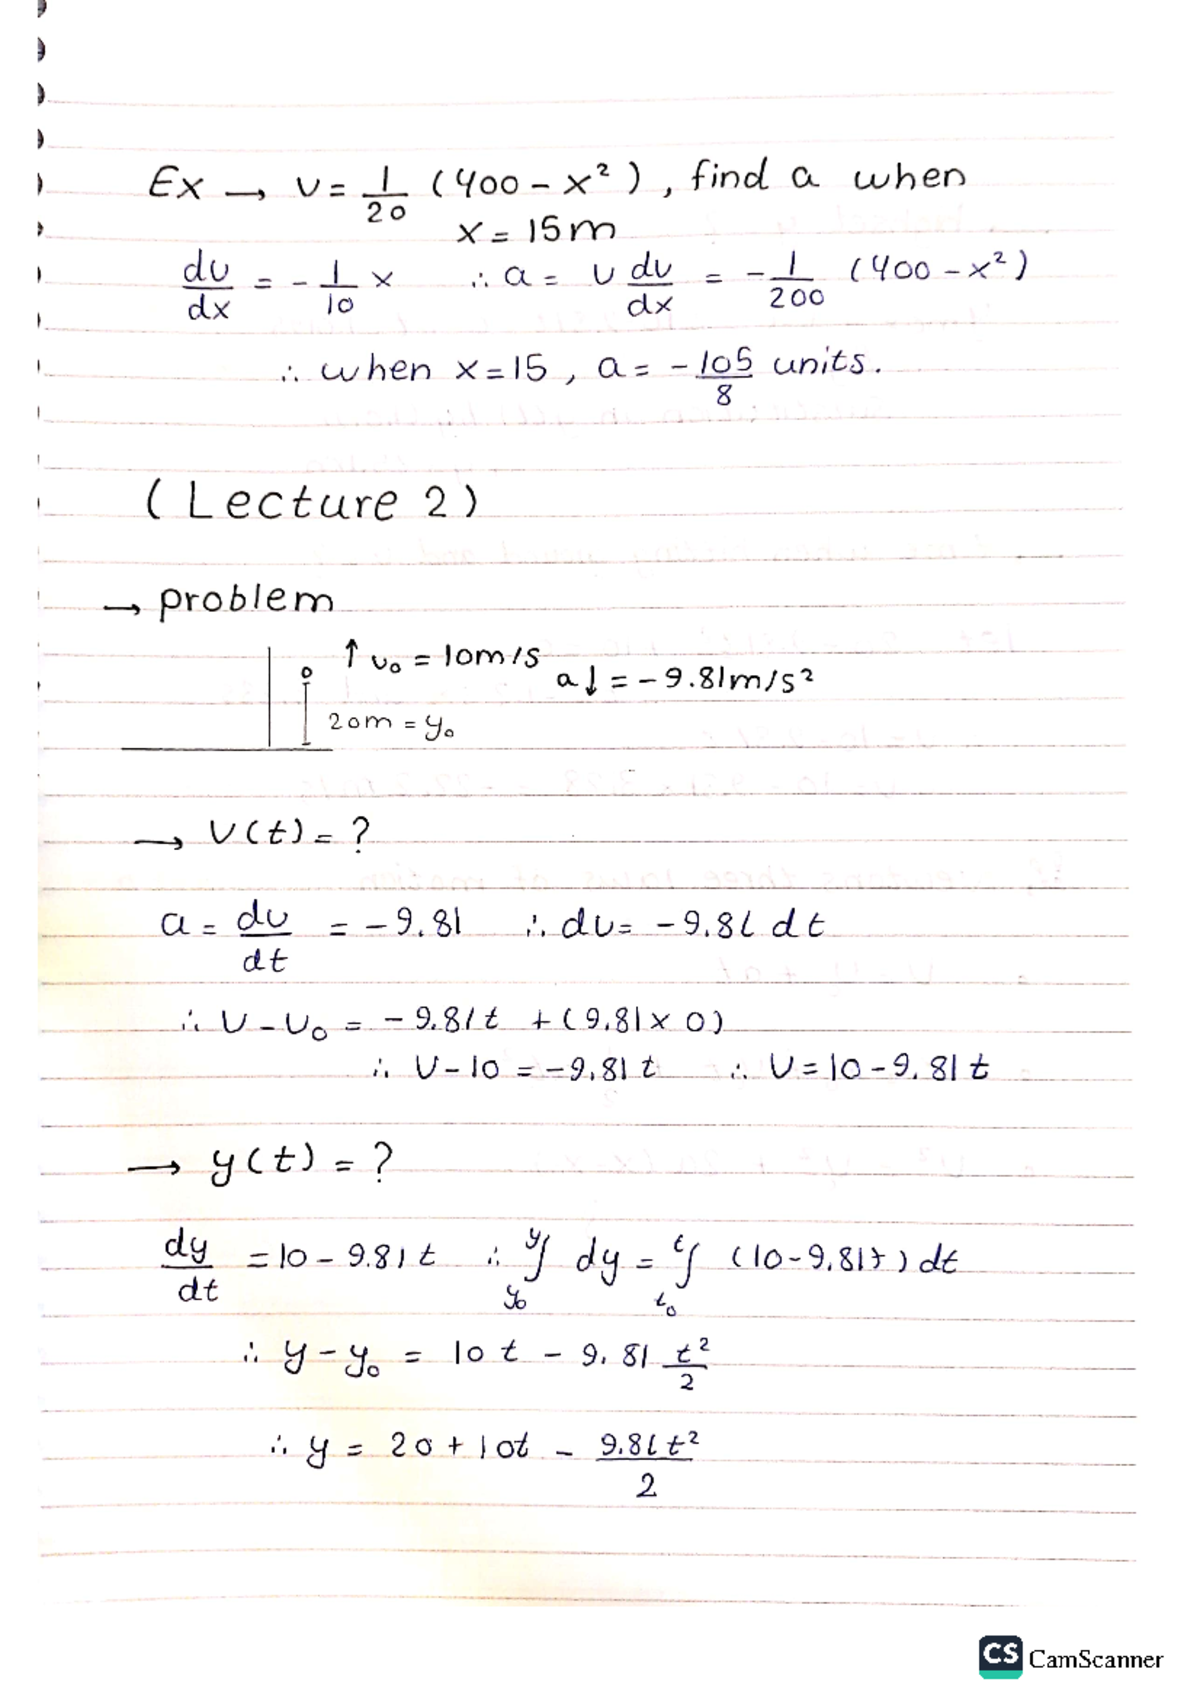 Ex → v = 1/20 (400 - x²), find a when
x = 15m
dv/dx = - 1/10 x ∴ a = v dv/dx = - 1/200 (400 - x²)
∴ when x=15, a = - 105/8 units.
(Lecture 2)
→ problem
↑ v₀ = 10m/s
a↓ = -9.81m/s²
20m = y₀
→ v(t) = ?
a = dv/dt = -9.81 ∴ dv = -9.81 dt
∴ v - v₀ = -9.81t + (9.81 x 0)
∴ v - 10 = -9.81t ∴ v = 10 - 9.81t
→ y(t) = ?
dy/dt = 10 - 9.81t ∴ y∫y₀ dy = t∫t₀ (10 - 9.81t) dt
∴ y - y₀ = 10t - 9.81 t²/2
∴ y = 20 + 10t - 9.81t²/2
CS CamScanner